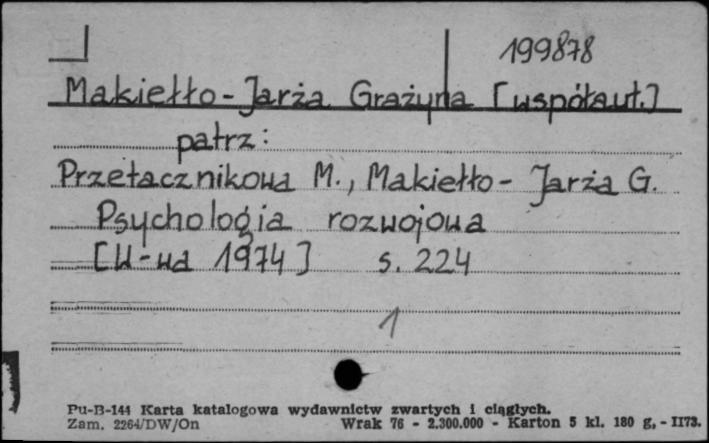 199878
Makiełło-Jarża Grażyna [współaut.]
patrz:
Przetacznikowa M., Makiełło-Jarża G.
Psychologia rozwojowa
[W-wa 1974] s. 224
1
Pu-B-144 Karta katalogowa wydawnictw zwartych i ciągłych.
Zam. 2264/DW/On Wrak 76 - 2.300.000 - Karton 5 kl. 180 g, - II73.